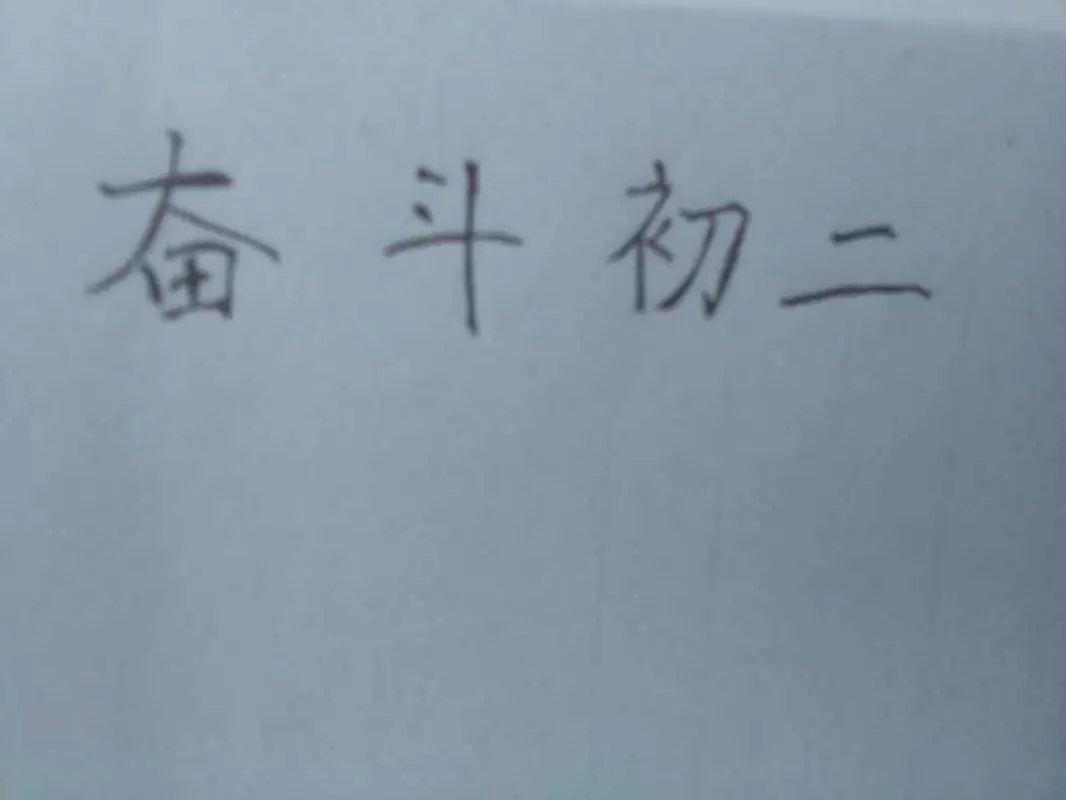 奋斗初二